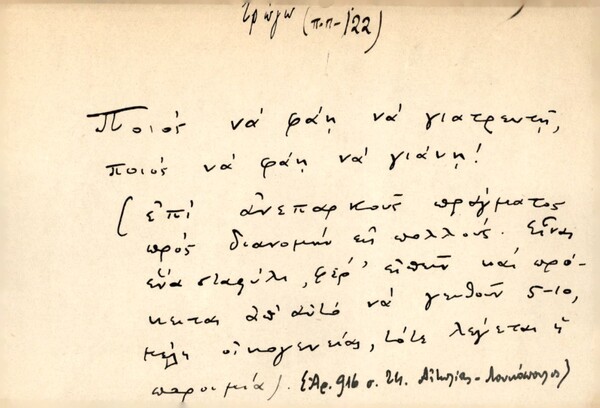 Τρώγω (π.π-122)
Ποιός νά φάῃ νά γιατρευτῇ,
ποιός νά φάῃ νά γιάνῃ!
(ἐπί ἀνεπαρκοῦς πράγματος
πρός διανομήν εἰς πολλούς. Εἶναι
ἕνα σταφύλι, φέρ' εἰπεῖν καί πρό-
κειται ἀπ' αὐτό νά γευθοῦν 5-10,
μέλη οἰκογενείας, τότε λέγεται ἡ
παροιμία). (Ἀρ. 916 σ. 24. Αἰτωλίας - Λουκόπουλος)